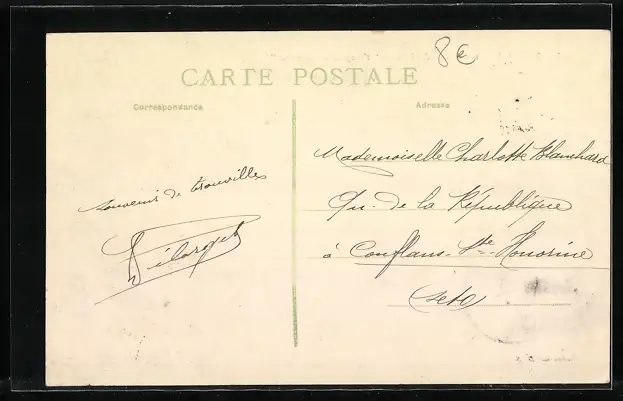 8€
CARTE POSTALE
Correspondance
Adresse
Mademoiselle Charlotte Blanchard
Qu. de la République
à Conflans-Ste-Honorine
(Seto)
souvenir de trouville